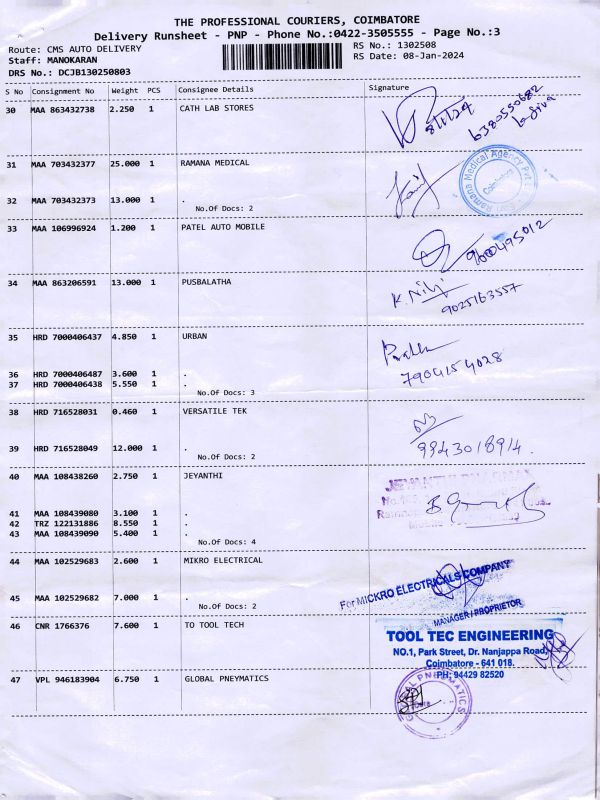 THE PROFESSIONAL COURIERS, COIMBATORE
Delivery Runsheet - PNP - Phone No.:0422-3505555 - Page No.:3
Route: CMS AUTO DELIVERY
RS No.: 1302508
Staff: MANOKARAN
RS Date: 08-Jan-2024
DRS No.: DCJB130250803
S No Consignment No Weight PCS Consignee Details Signature
30 MAA 863432738 2.250 1 CATH LAB STORES
8/1/24 6380550682
31 MAA 703432377 25.000 1 RAMANA MEDICAL
Ramana Medical Agency Pvt
Coimbatore
32 MAA 703432373 13.000 1 .
No.Of Docs: 2
33 MAA 106996924 1.200 1 PATEL AUTO MOBILE
9600495012
34 MAA 863206591 13.000 1 PUSBALATHA
9025163557
35 HRD 7000406437 4.850 1 URBAN
7904154028
36 HRD 7000406487 3.600 1 .
37 HRD 7000406438 5.550 1 .
No.Of Docs: 3
38 HRD 716528031 0.460 1 VERSATILE TEK
39 HRD 716528049 12.000 1 .
9943018914.
No.Of Docs: 2
40 MAA 108438260 2.750 1 JEYANTHI
41 MAA 108439080 3.100 1 .
42 TRZ 122131886 8.550 1 .
43 MAA 108439090 5.400 1 .
No.Of Docs: 4
44 MAA 102529683 2.600 1 MIKRO ELECTRICAL
For MICKRO ELECTRICALS COMPANY
45 MAA 102529682 7.000 1 .
No.Of Docs: 2
MANAGER / PROPRIETOR
46 CNR 1766376 7.600 1 TO TOOL TECH
TOOL TEC ENGINEERING
NO.1, Park Street, Dr. Nanjappa Road,
Coimbatore - 641 018.
PH: 94429 82520
47 VPL 946183904 6.750 1 GLOBAL PNEYMATICS
GLOBAL PNEUMATICS